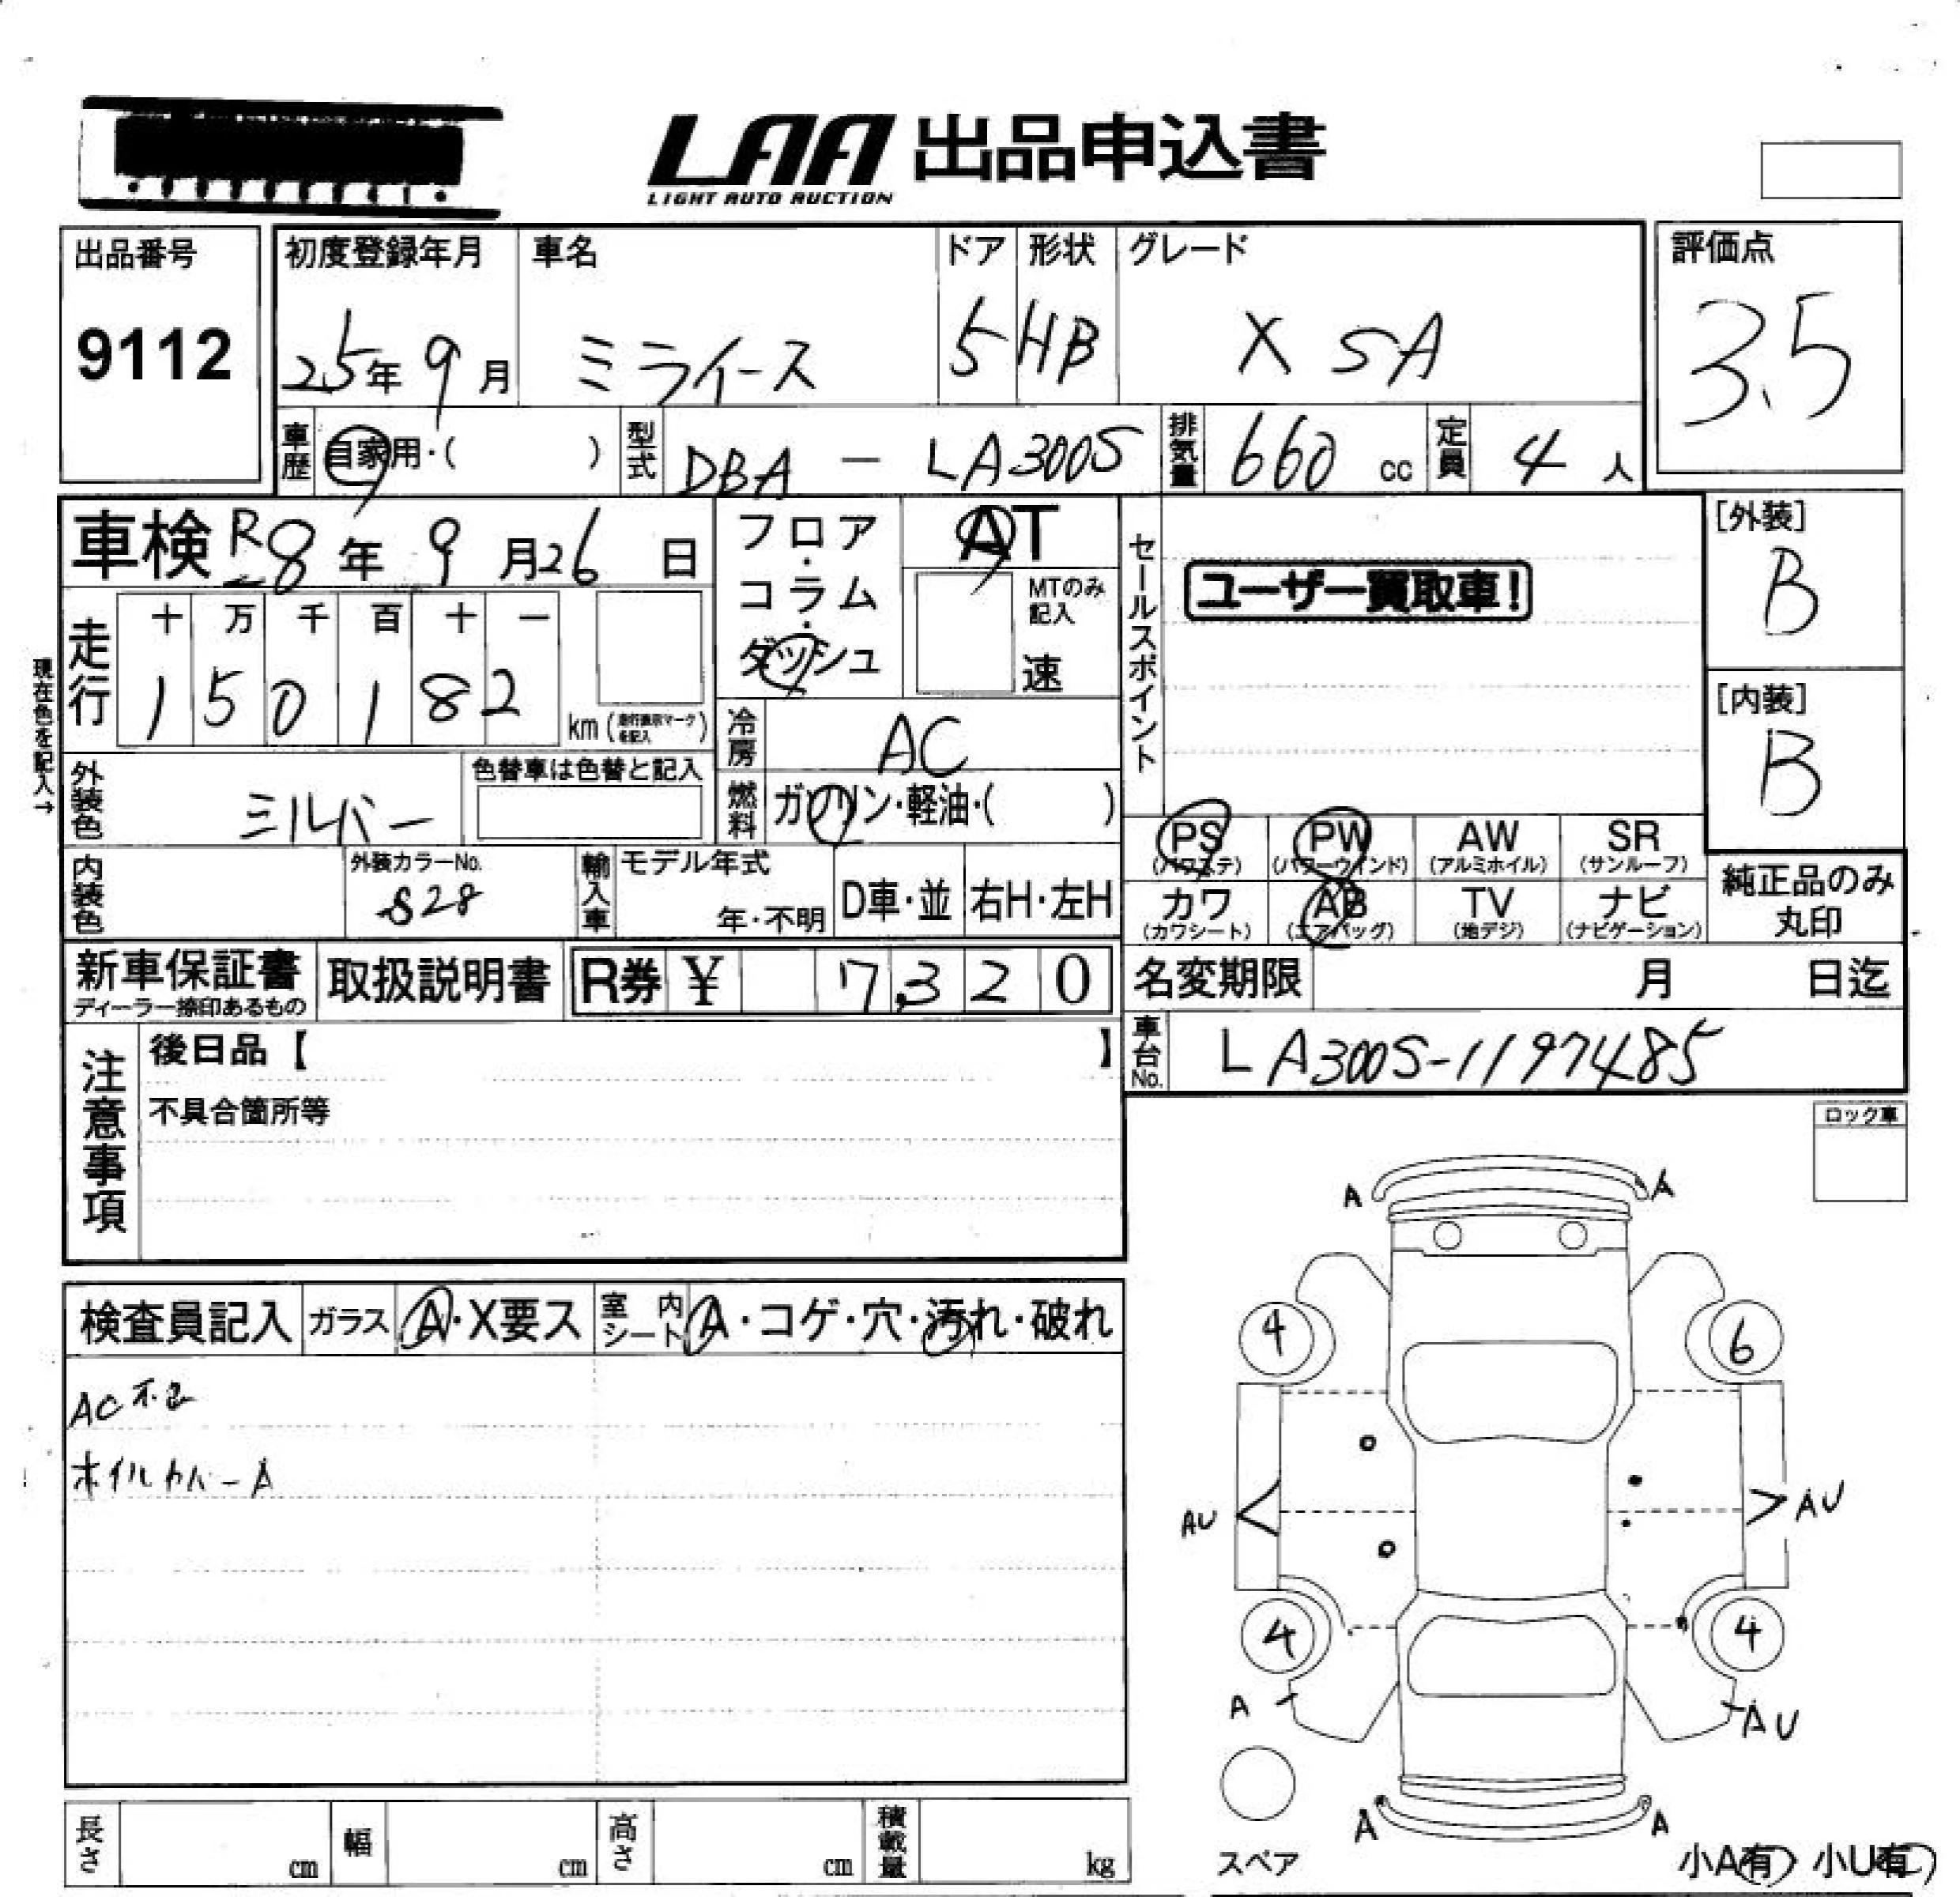 LAA 出品申込書
LIGHT AUTO AUCTION
出品番号
9112
初度登録年月
25年 9月
車名
ミライース
ドア
5
形状
HB
グレード
X SA
評価点
3.5
車歴
自家用・( )
型式
DBA - LA300S
排気量
660 cc
定員
4 人
車検 R8年 9月26日
フロア・コラム・ダッシュ
AT
MTのみ記入
速
セールスポイント
ユーザー買取車!
[外装]
B
[内装]
B
現在色を記入→
走行
十 万 千 百 十 一
1 5 0 1 8 2
km (走行表示マークを記入)
冷房
AC
外装色
シルバー
色替車は色替と記入
燃料
ガソリン・軽油・( )
PS
(パワステ)
PW
(パワーウインド)
AW
(アルミホイル)
SR
(サンルーフ)
カワ
(カワシート)
AB
(エアバッグ)
TV
(地デジ)
ナビ
(ナビゲーション)
純正品のみ
丸印
内装色
外装カラーNo.
S28
輸入車
モデル年式
年・不明
D車・並
右H・左H
新車保証書
ディーラー捺印あるもの
取扱説明書
R券 ¥ 7,320
名変期限 月 日迄
車台No.
LA300S-1197485
注意事項
後日品【 】
不具合箇所等
ロック車
検査員記入
ガラス
A・X要ス
室内シート
A・コゲ・穴・汚れ・破れ
AC不良
ホイルカバーA
A A
4 6
AU AU
4 4
A AU
A A
スペア
小A有 小U有
長さ cm
幅 cm
高さ cm
積載量 kg